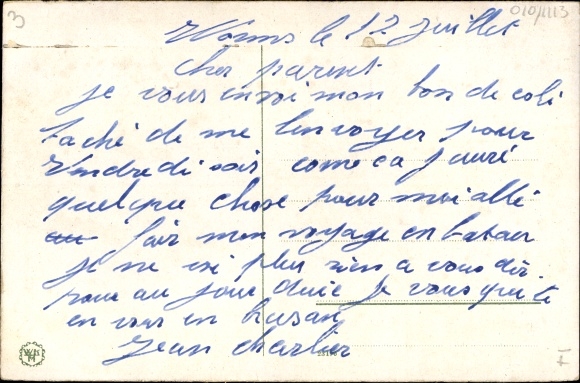 3
010/1113
Worms le 12 juillet
cher parent
je vous envoi mon bon de coli
taché de me lenvoyer pour
Vendredi soir come ca jauré
quelque chose pour moi allé
fair mon voyage en bataur
je ne voi plus rien a vous dir
pour au jour duie je vous quite
en vous en brasan
Jean Charlier